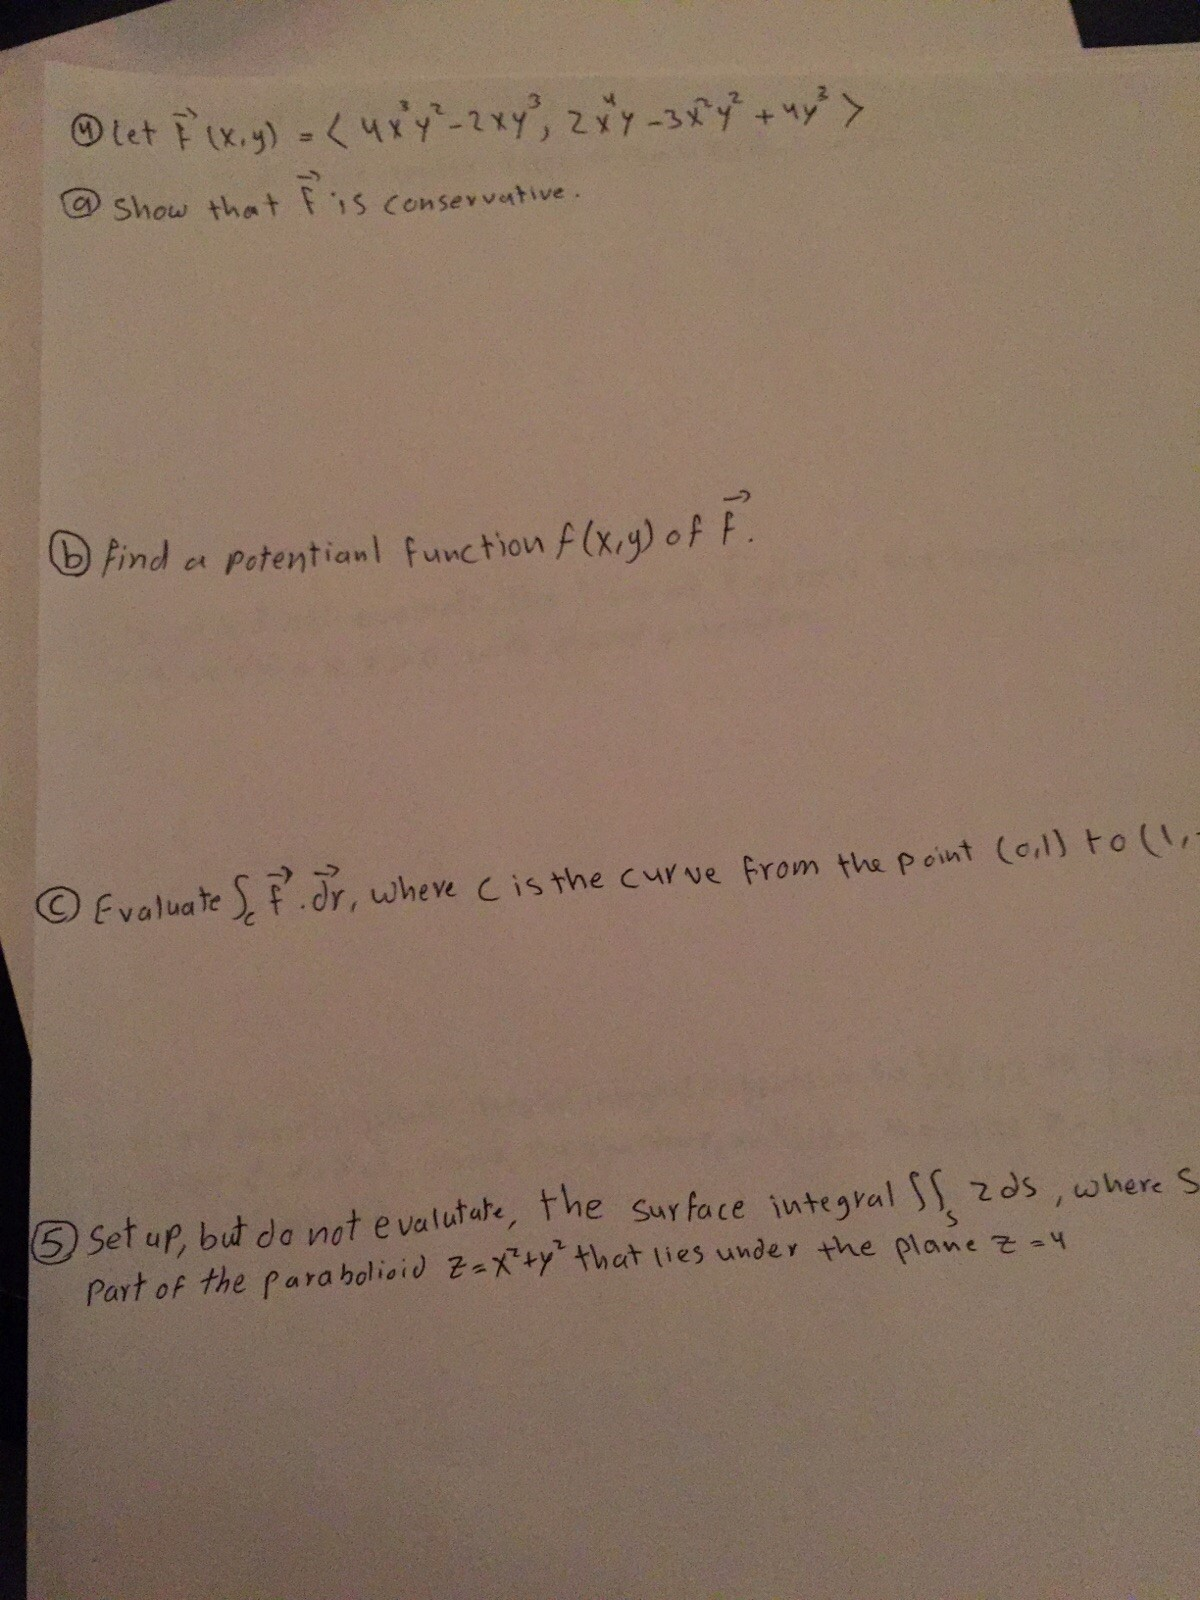 ④ Let F⃗(x,y) = <4x³y²-2xy³, 2x⁴y-3x²y²+4y³>
ⓐ Show that F⃗ is conservative.
ⓑ find a potentianl function f(x,y) of F⃗.
ⓒ Evaluate ∫c F⃗.dr⃗, where c is the curve from the point (0,1) to (1,
⑤ Set up, but do not evalutate, the surface integral ∬s zds, where S
part of the parabolioid z=x²+y² that lies under the plane z=4